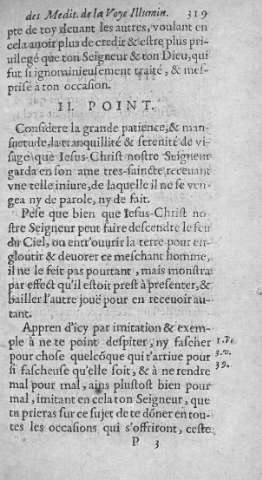 des Medit. de la Voye Illumin. 319
pte de toy deuant les autres, voulant en
cela auoir plus de credit & estre plus pri-
uilegé que ton Seigneur & ton Dieu, qui
fut si ignominieusement traité, & mes-
prisé à ton occasion.
II. POINT.
Considere la grande patience, & man-
suetude, la tranquillité & serenité de vi-
sage que Iesus-Christ nostre Seigneur
garda en son ame tres-saincte, receuant
vne telle iniure, de laquelle il ne se ven-
gea ny de parole, ny de fait.
Pése que bien que Iesus-Christ no-
stre Seigneur peut faire descendre le feu
du Ciel, ou ent'ouurir la terre pour en-
gloutir & deuorer ce meschant homme,
il ne le feit pas pourtant, mais monstra
par effect qu'il estoit prest à presenter, &
bailler l'autre joüe pour en receuoir au-
tant.
Appren d'icy par imitation & exem-
ple à ne te point despiter, ny fascher 1. Pe.
pour chose quelcóque qui t'arriue pour 3. v.
si fascheuse qu'elle soit, & à ne rendre 39.
mal pour mal, ains plustost bien pour
mal, imitant en cela ton Seigneur, que
tu prieras sur ce subjet de te dóner en tou-
tes les occasions qui s'offriront, ceste
P 3